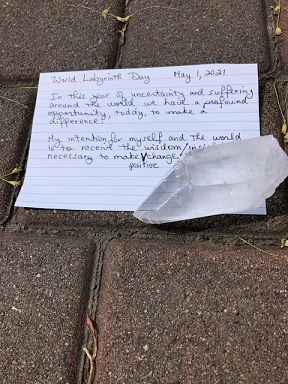 World Labyrinth Day May 1, 2021
In this year of uncertainty and suffering
around the world we have a profound
opportunity, today, to make a
difference.
My intention for myself and the world
is to receive the wisdom/
necessary to make change.
positive